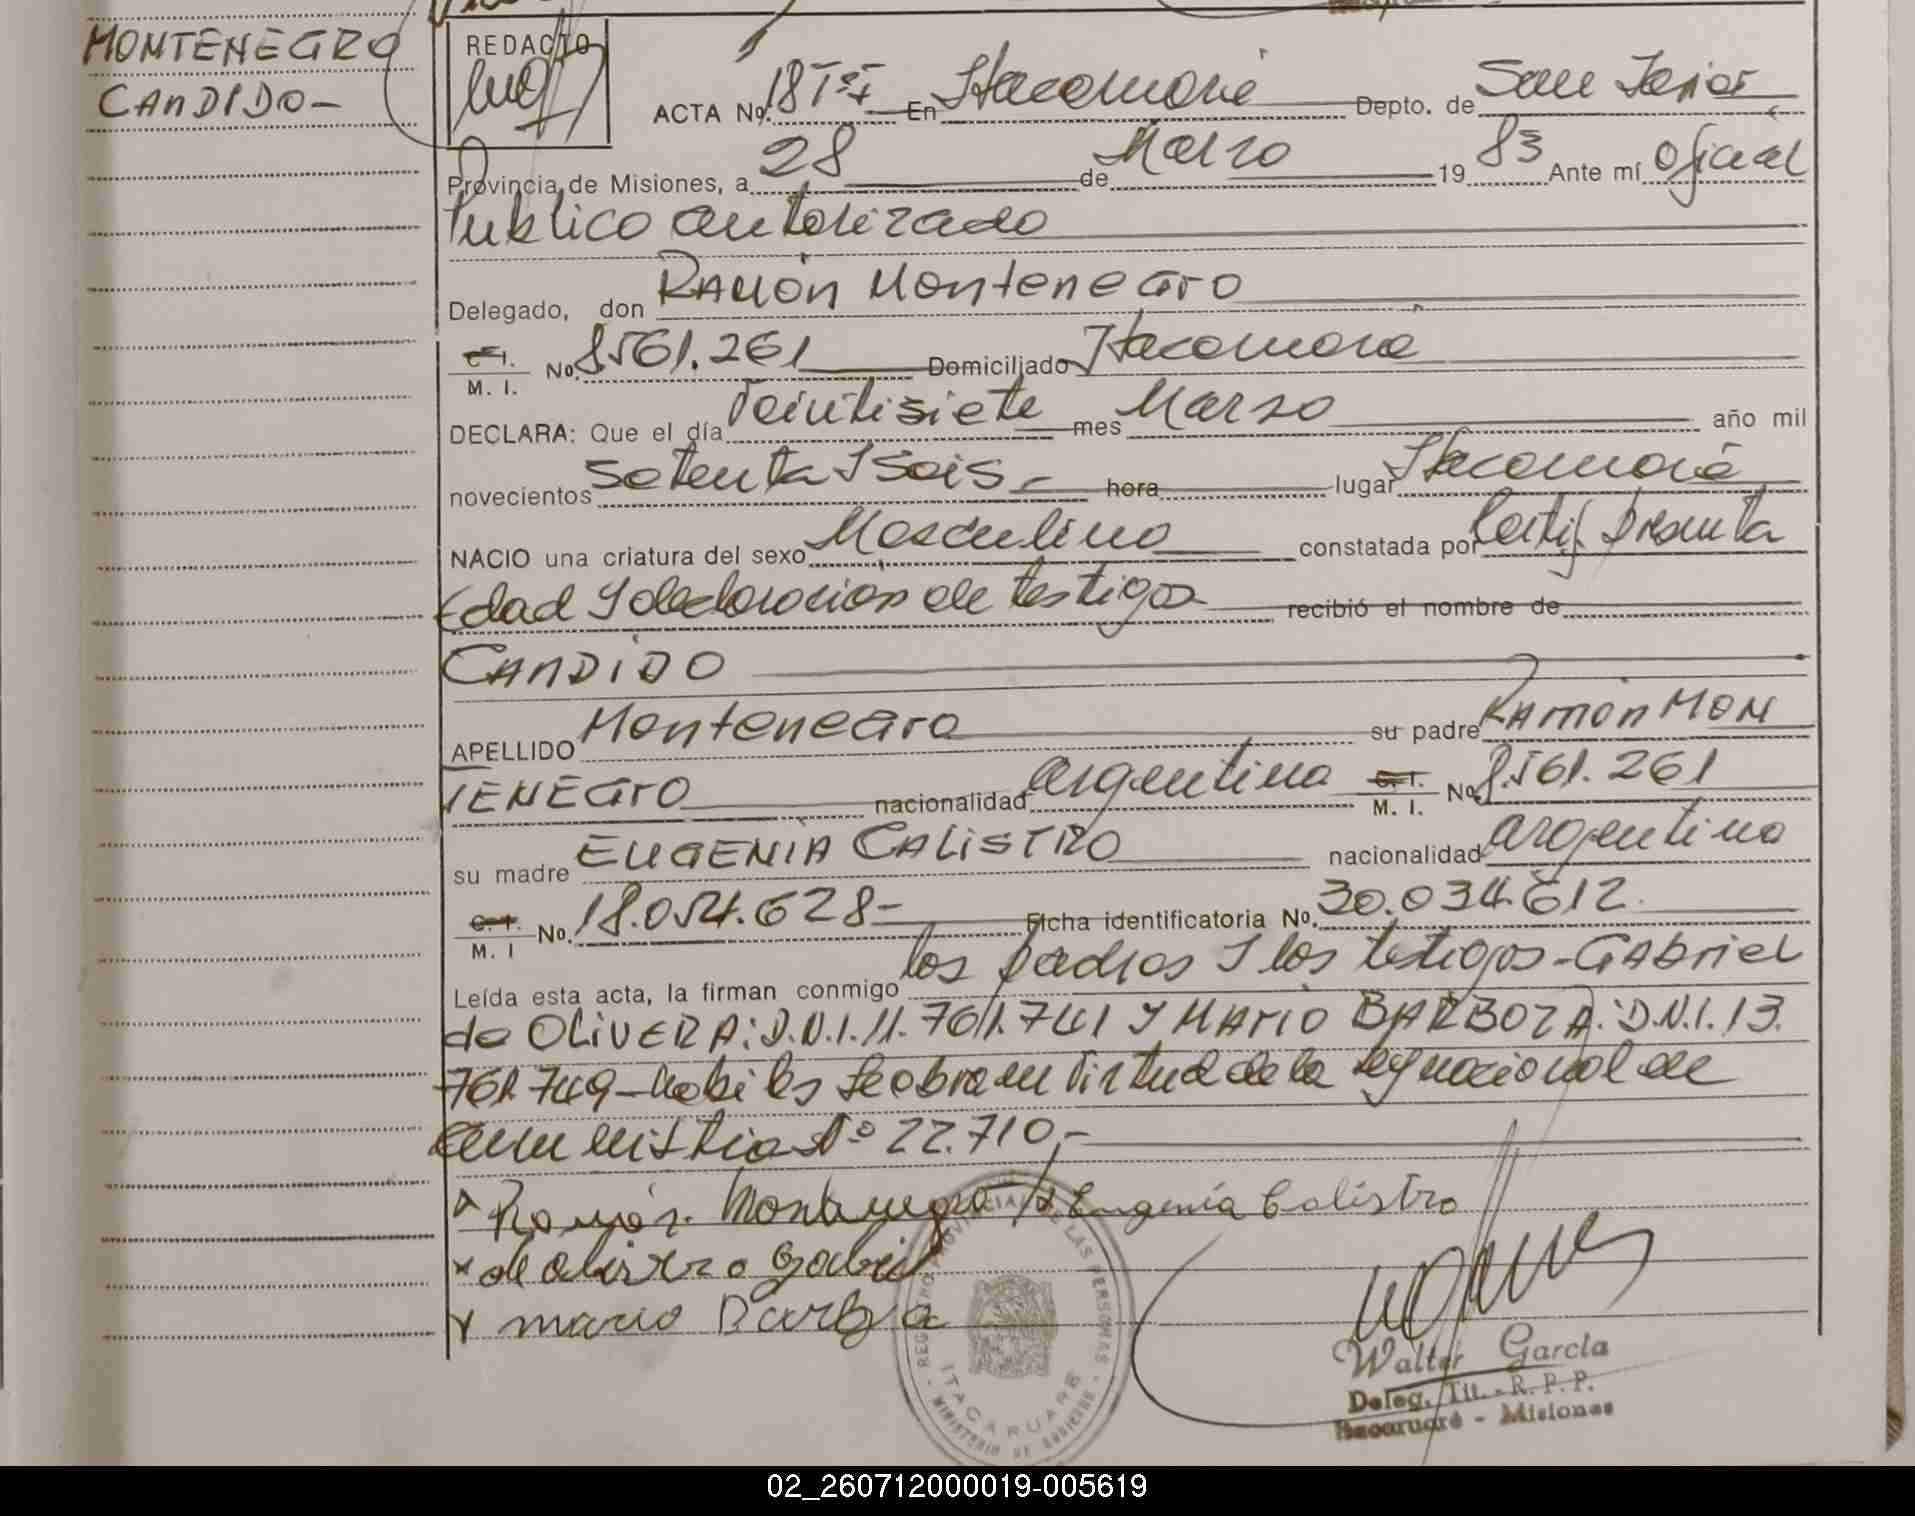 MONTENEGRO
CANDIDO-
REDACTO
ACTA No. 18 En Itacaruaré Depto. de San Javier
Provincia de Misiones, a 28 de Marzo 19 83 Ante mí Oficial
Publico autorizado
Delegado, don RAMÓN MontenEGro
C. I. M. I. No. 8.561.261 Domiciliado Itacaruaré
DECLARA: Que el día Veintisiete mes Marzo año mil
novecientos setenta Y Seis - hora lugar Itacaruaré
NACIO una criatura del sexo Masculino constatada por Certif. Presunta
Edad Y declaración de testigos recibió el nombre de
CANDIDO
APELLIDO MontenEGro su padre RAMÓN MON
TENEGrO nacionalidad argentina C. I. M. I. No. 8.561.261
su madre EUGENIA CALISTRO nacionalidad argentina
C. I. M. I No. 18.054.628- Ficha identificatoria No. 30.034.612.
Leída esta acta, la firman conmigo los padres Y los testigos-GABriel
de OLiVERA: D.N.I. 11.761.741 Y MARIO BARBOZA: D.N.I. 13.
761.749-habiles Se obra en Virtud de la ley nacional de
amnistia Nº 22.710,-
Ramón Montenegro Eugenia Calistro
de olivera Gabriel
mario Barboza
REGISTRO PROVINCIAL DE LAS PERSONAS
ITACARUARE
Walter García
Deleg. Tit. - R. P. P.
Itacaruaré - Misiones
02_260712000019-005619